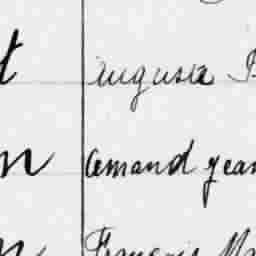 t augusta
n amand jean
n François